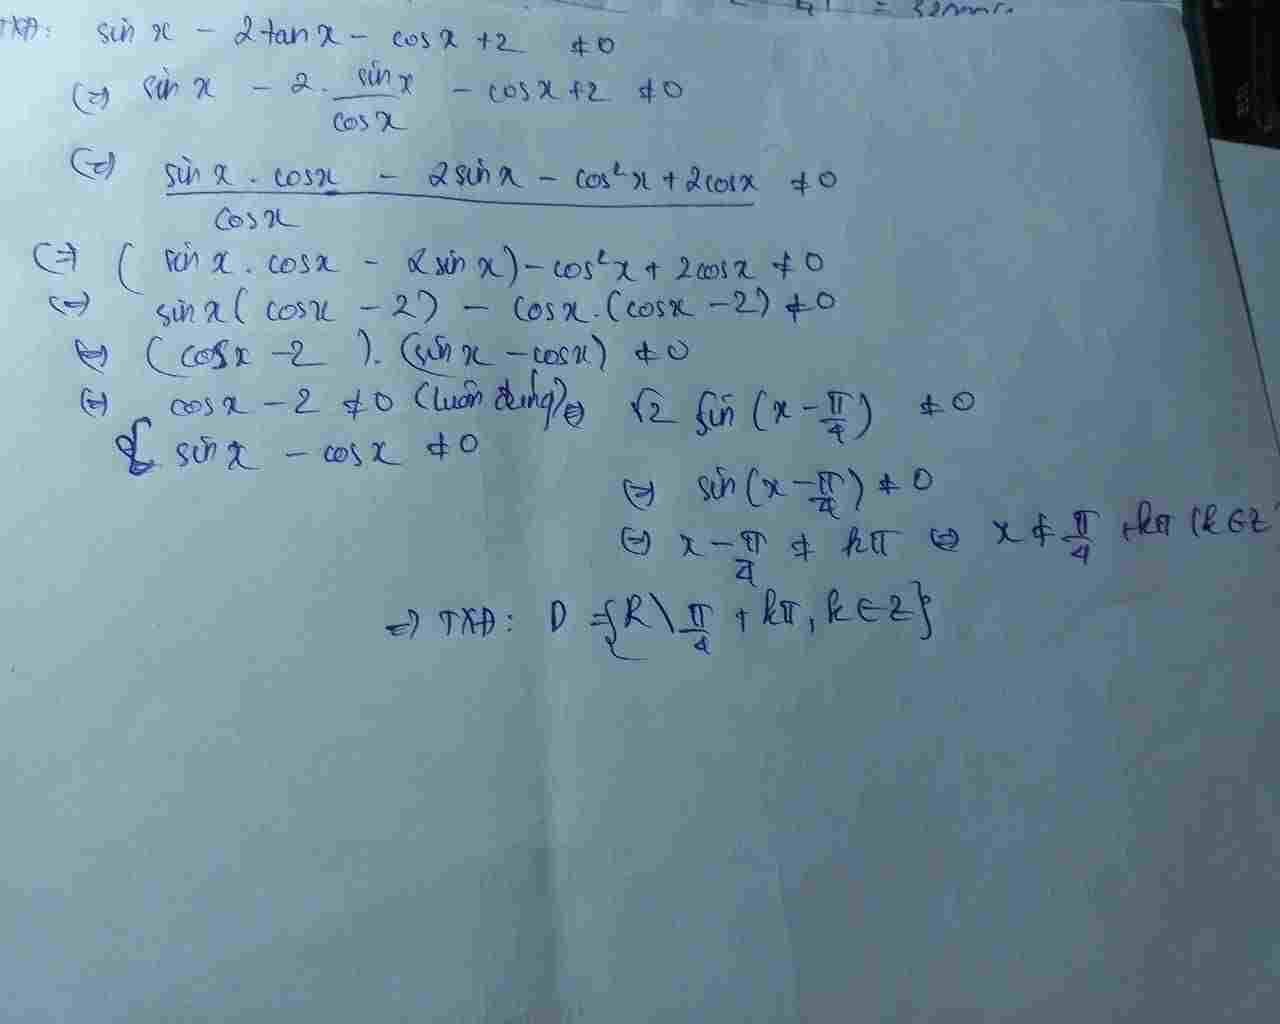 TXĐ: sin x - 2tan x - cos x + 2 ≠ 0
(=) sin x - 2. sin x / cos x - cos x + 2 ≠ 0
(=) sin x . cos x - 2 sin x - cos² x + 2 cos x / cos x ≠ 0
(=) ( sin x . cos x - 2 sin x) - cos² x + 2 cos x ≠ 0
(=) sin x ( cos x - 2) - cos x . (cos x - 2) ≠ 0
(=) (cos x - 2 ). (sin x - cos x) ≠ 0
(=) cos x - 2 ≠ 0 (luôn đúng) (=) √2 sin (x - π/4) ≠ 0
{ sin x - cos x ≠ 0
(=) sin (x - π/4) ≠ 0
(=) x - π/4 ≠ kπ (=) x ≠ π/4 + kπ (k ∈ Z
=) TXĐ: D = {R \ π/4 + kπ, k ∈ Z}